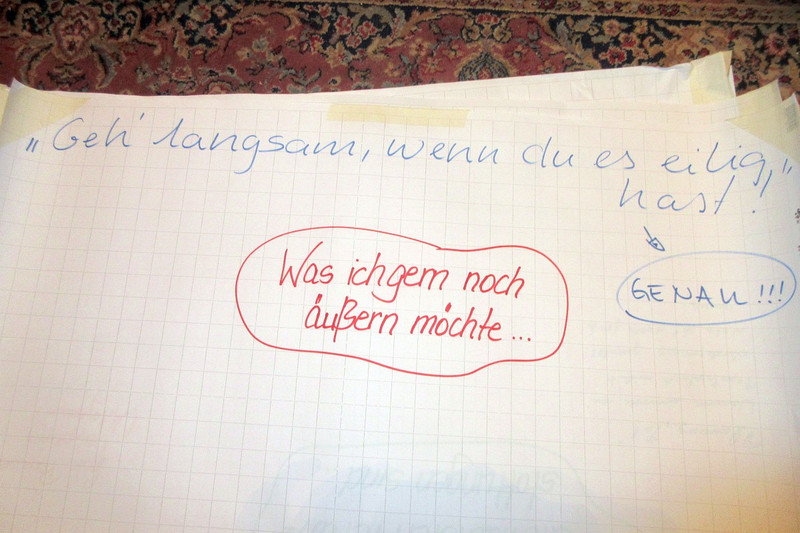 „Geh' langsam, wenn du es eilig
hast!"
GENAU!!!
Was ich gern noch
äußern möchte...